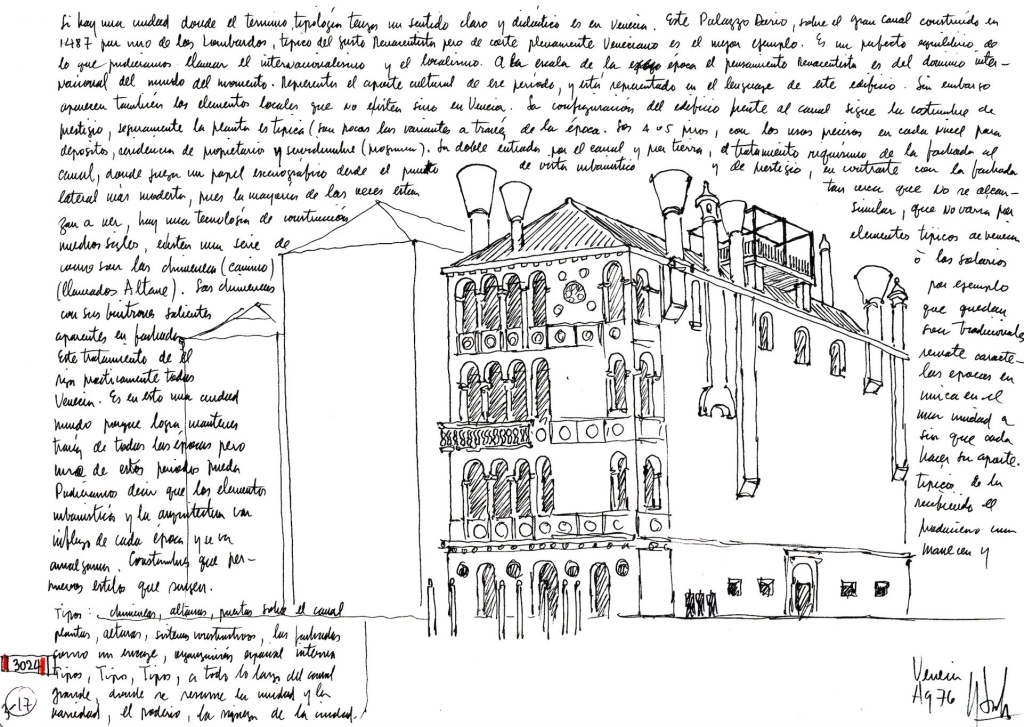 Si hay una ciudad donde el termino, tipología tenga un sentido claro y didáctico es en Venecia. Este Palazzo Dario, sobre el gran canal construido en
1487 por uno de los Lombardos, típico del gusto Renacentista pero de corte plenamente Veneciano es el mejor ejemplo. Es un perfecto equilibrio de
lo que pudieramos llamar el internacionalismo y el localismo. A la escala de la época el pensamiento Renacentista es del dominio inter-
nacional del mundo del momento. Representa el aporte cultural de ese período, y está representado en el lenguaje de este edificio. Sin embargo
aparecen también los elementos locales que no existen sino en Venecia. La configuración del edificio frente al canal sigue la costumbre de
prestigio, seguramente la planta es típica (son pocas las variantes a través de la época. Los 4 o 5 pisos, con los usos precisos en cada nivel para
depositos, residencia de propietario y servidumbre (programa). La doble entrada por el canal y por tierra, el tratamiento riquísimo de la fachada al
canal, donde juega un papel escenográfico desde el punto de vista urbanístico y de prestigio, en contraste con la fachada
lateral más modesta, pues la mayoría de las veces están tan cerca que no se alcan-
zan a ver, hay una tecnología de construcción similar, que no varia por
medios siglos, existen una serie de elementos típicos de Venecia
como son las chimeneas (camino) o los solarios
(llamados Altane). Las chimeneas por ejemplo
con sus buitrones salientes que quedan
aparentes en fachada, son tradicionales
Este tratamiento de el remate caracte-
riza practicamente todas las epocas en
Venecia. Es en esto una ciudad unica en el
mundo porque logra mantener una unidad a
través de todas las épocas pero sin que cada
uno de estos periodos pueda hacer su aporte.
Pudieramos decir que los elementos típicos de la
urbanística y la arquitectura van recibiendo el
influjo de cada época y se va produciendo una
amalgama. Constantes que per- manecen y
nuevos estilos que surgen.
Tipos: chimeneas, altanas, puertas sobre el canal
plantas, alturas, sistemas constructivos, las fachadas
como un encaje, organización espacial interna
Tipos, Tipo, Tipos, a todo lo largo del canal
grande, donde se resume la unidad y la
variedad, el poderío, la riqueza de la ciudad.
3024
17
Venecia
Ag 76